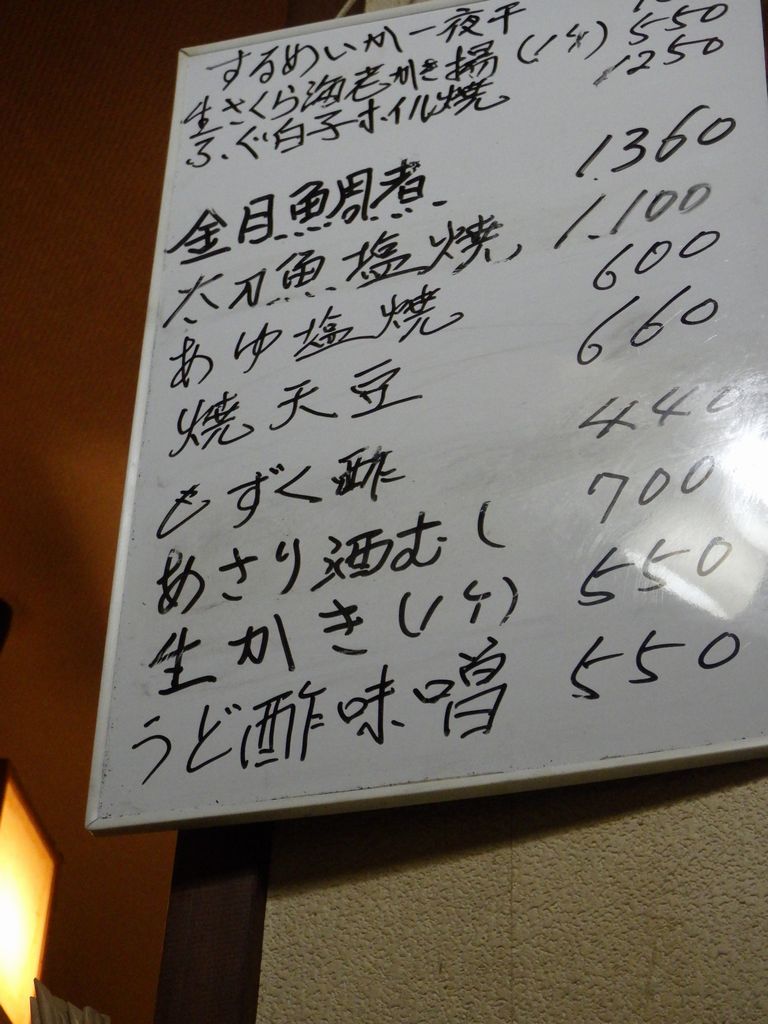 するめいか一夜干
生さくら海老かき揚(1ケ) 550
ふぐ白子ホイル焼 1250
金目鯛煮 1.360
太刀魚塩焼 1.100
あゆ塩焼 600
焼天豆 660
もずく酢 440
あさり酒むし 700
生かき(1ケ) 550
うど酢味噌 550